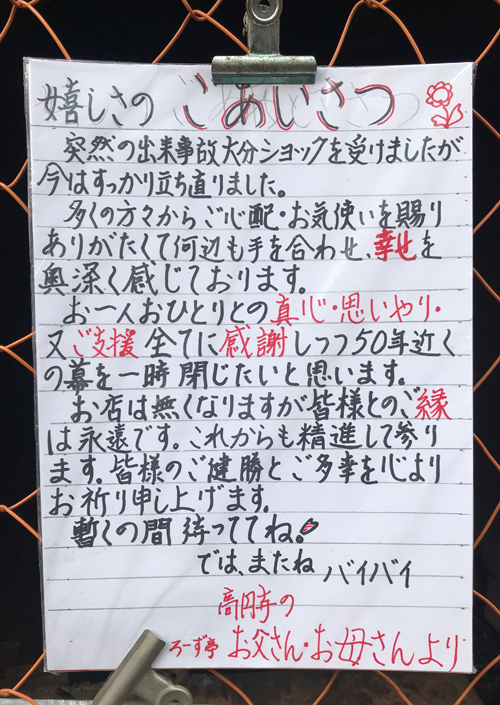 嬉しさの ごあいさつ
突然の出来事故大分ショックを受けましたが
今はすっかり立ち直りました。
多くの方々からご心配・お気使いを賜り
ありがたくて何辺も手を合わせ、幸せを
奥深く感じております。
お一人おひとりとの真心・思いやり・
又ご支援全てに感謝しつつ50年近く
の幕を一時閉じたいと思います。
お店は無くなりますが皆様とのご縁
は永遠です。これからも精進して参り
ます。皆様のご健勝とご多幸を心より
お祈り申し上げます。
暫くの間待っててね。
では、またね バイバイ
高円寺の
ろーず亭 お父さん・お母さんより